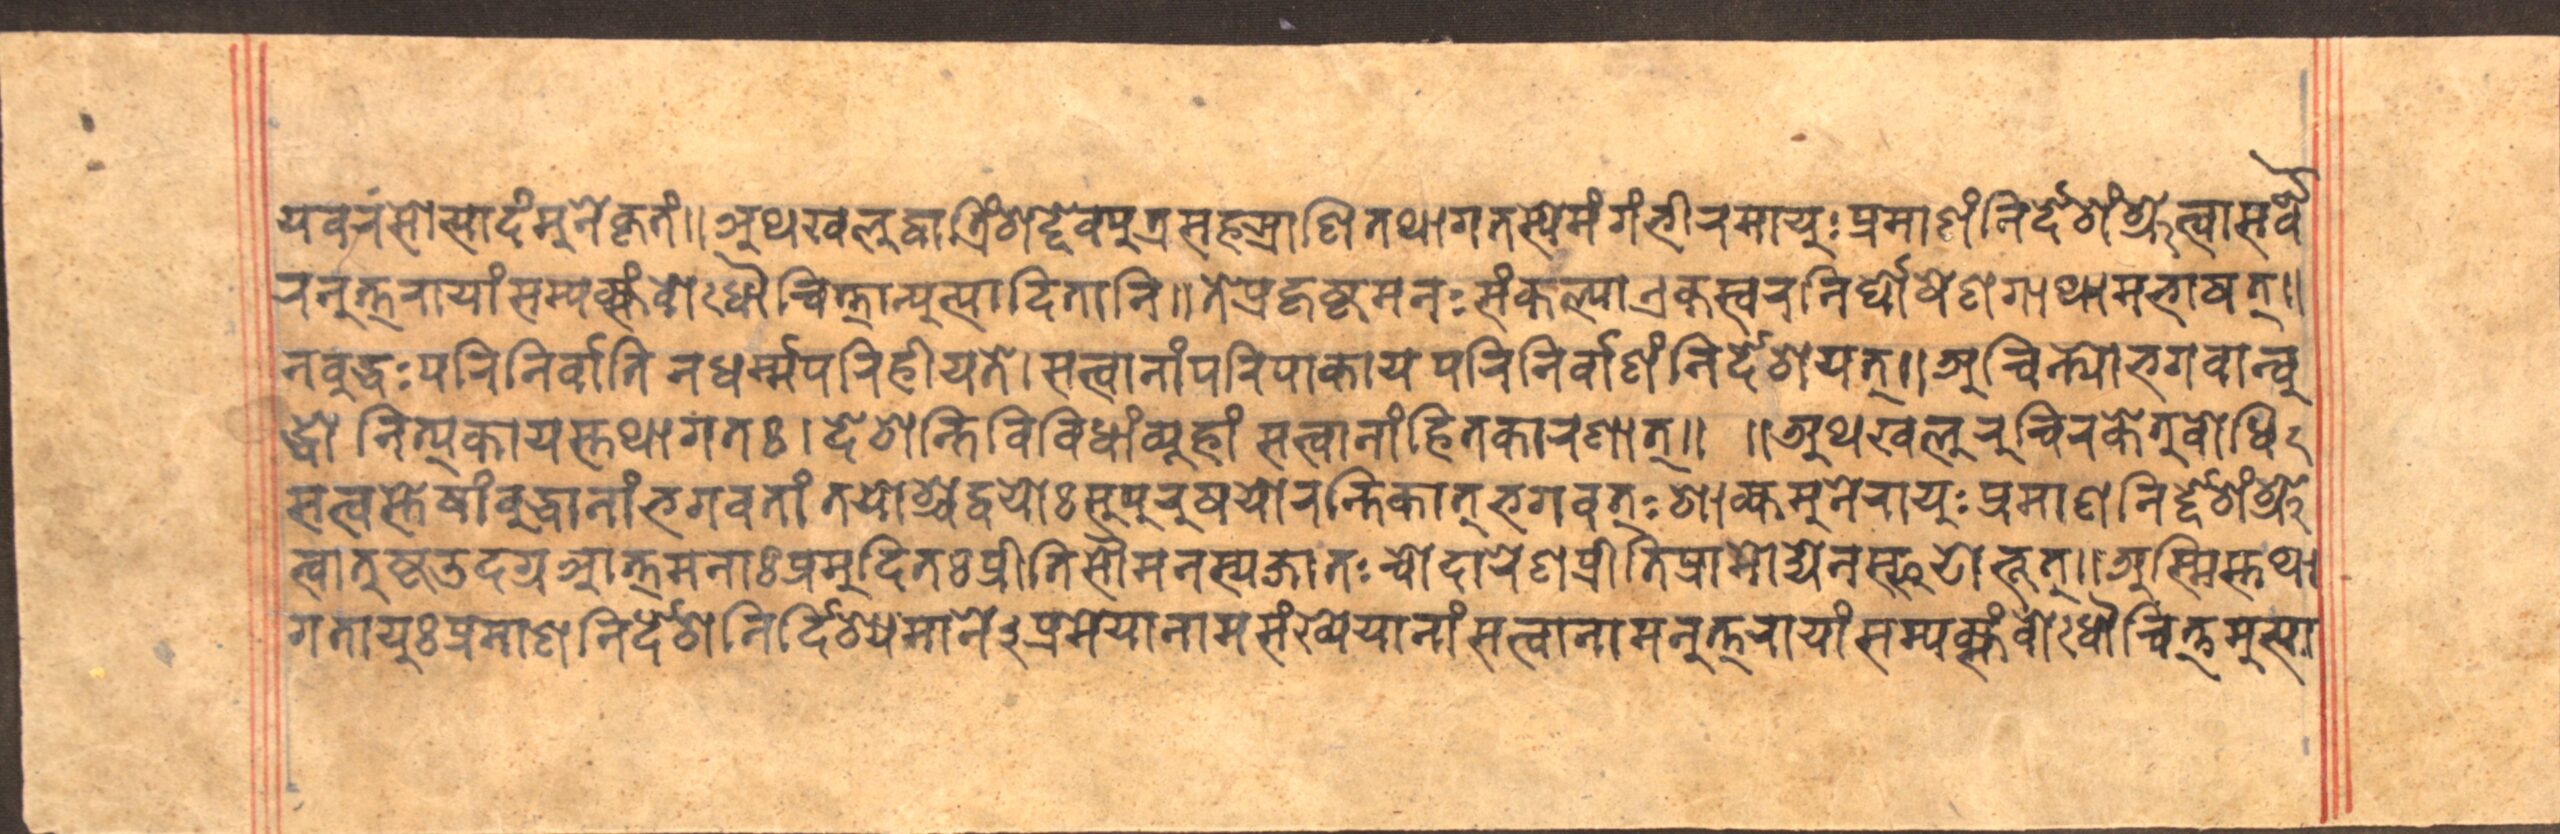 यवरंसोत्पादंमुनेकृतं॥अथखलुद्वात्रिंशद्देवपुत्रसहस्राणितथागतस्येमंगंभीरमायुःप्रमाणंनिर्देशंश्रुत्वासर्वै
रनुत्तरायांसम्यक्संबोधौचित्तान्युत्पादितानि॥तेप्रहृष्टमनःसंकल्पाएकस्वरनिर्घोषेणगाथामभाषत्॥
नबुद्धःपरिनिर्वाति नधर्म्मपरिहीयते।सत्वानांपरिपाकाय परिनिर्वाणंनिर्देशयत्॥अचिन्त्योभगवान्बु
द्धो नित्यकायस्तथागतः।देशेन्तिविविधांव्यूहां सत्वानांहितकारणात्॥ ॥अथखलुरुचिरकेतुबोधि
सत्वस्तेषांबुद्धानांभगवतां तयोश्चद्वयोःसुपुरुषयोरन्तिकात्भगवतःशाक्यमुनेरायुःप्रमाणनिर्द्देशंश्रु
त्वातुष्टउदग्रआत्तमनाःप्रमुदितःप्रीतिसौमनस्यजातःचोदारेणप्रीतिप्रामोद्येनस्फुटोभूत्॥अस्मिंस्तथा
गतायुःप्रमाणनिर्देशनिर्दिश्यमानेऽप्रमेयानामसंख्येयानांसत्वानामनुत्तरायांसम्यक्संबोधौचित्तमुत्पा